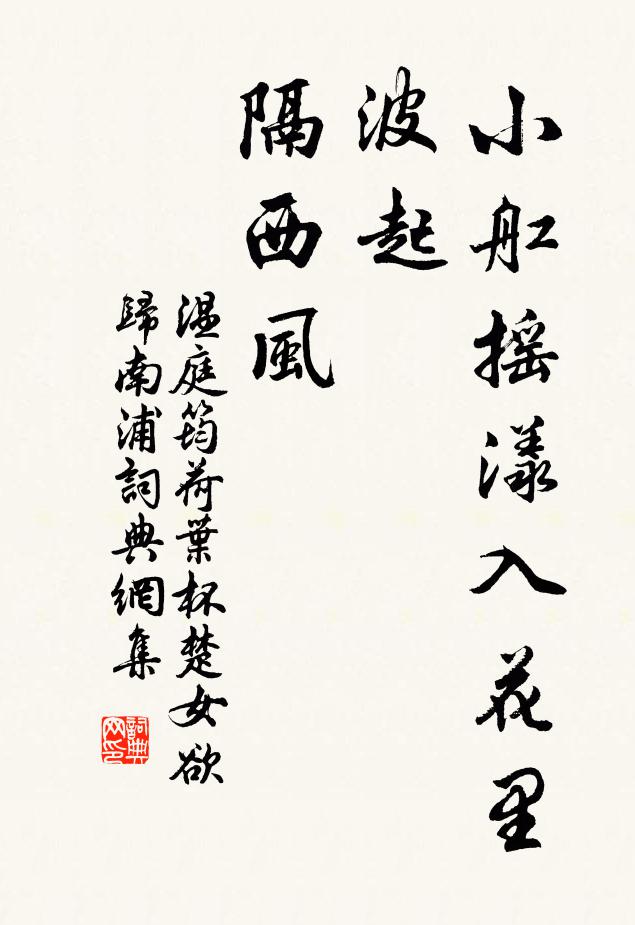 小舡摇漾入花里
波起
隔西風
温庭筠荷葉杯楚女欲
歸南浦詞典網集
詞典
网印